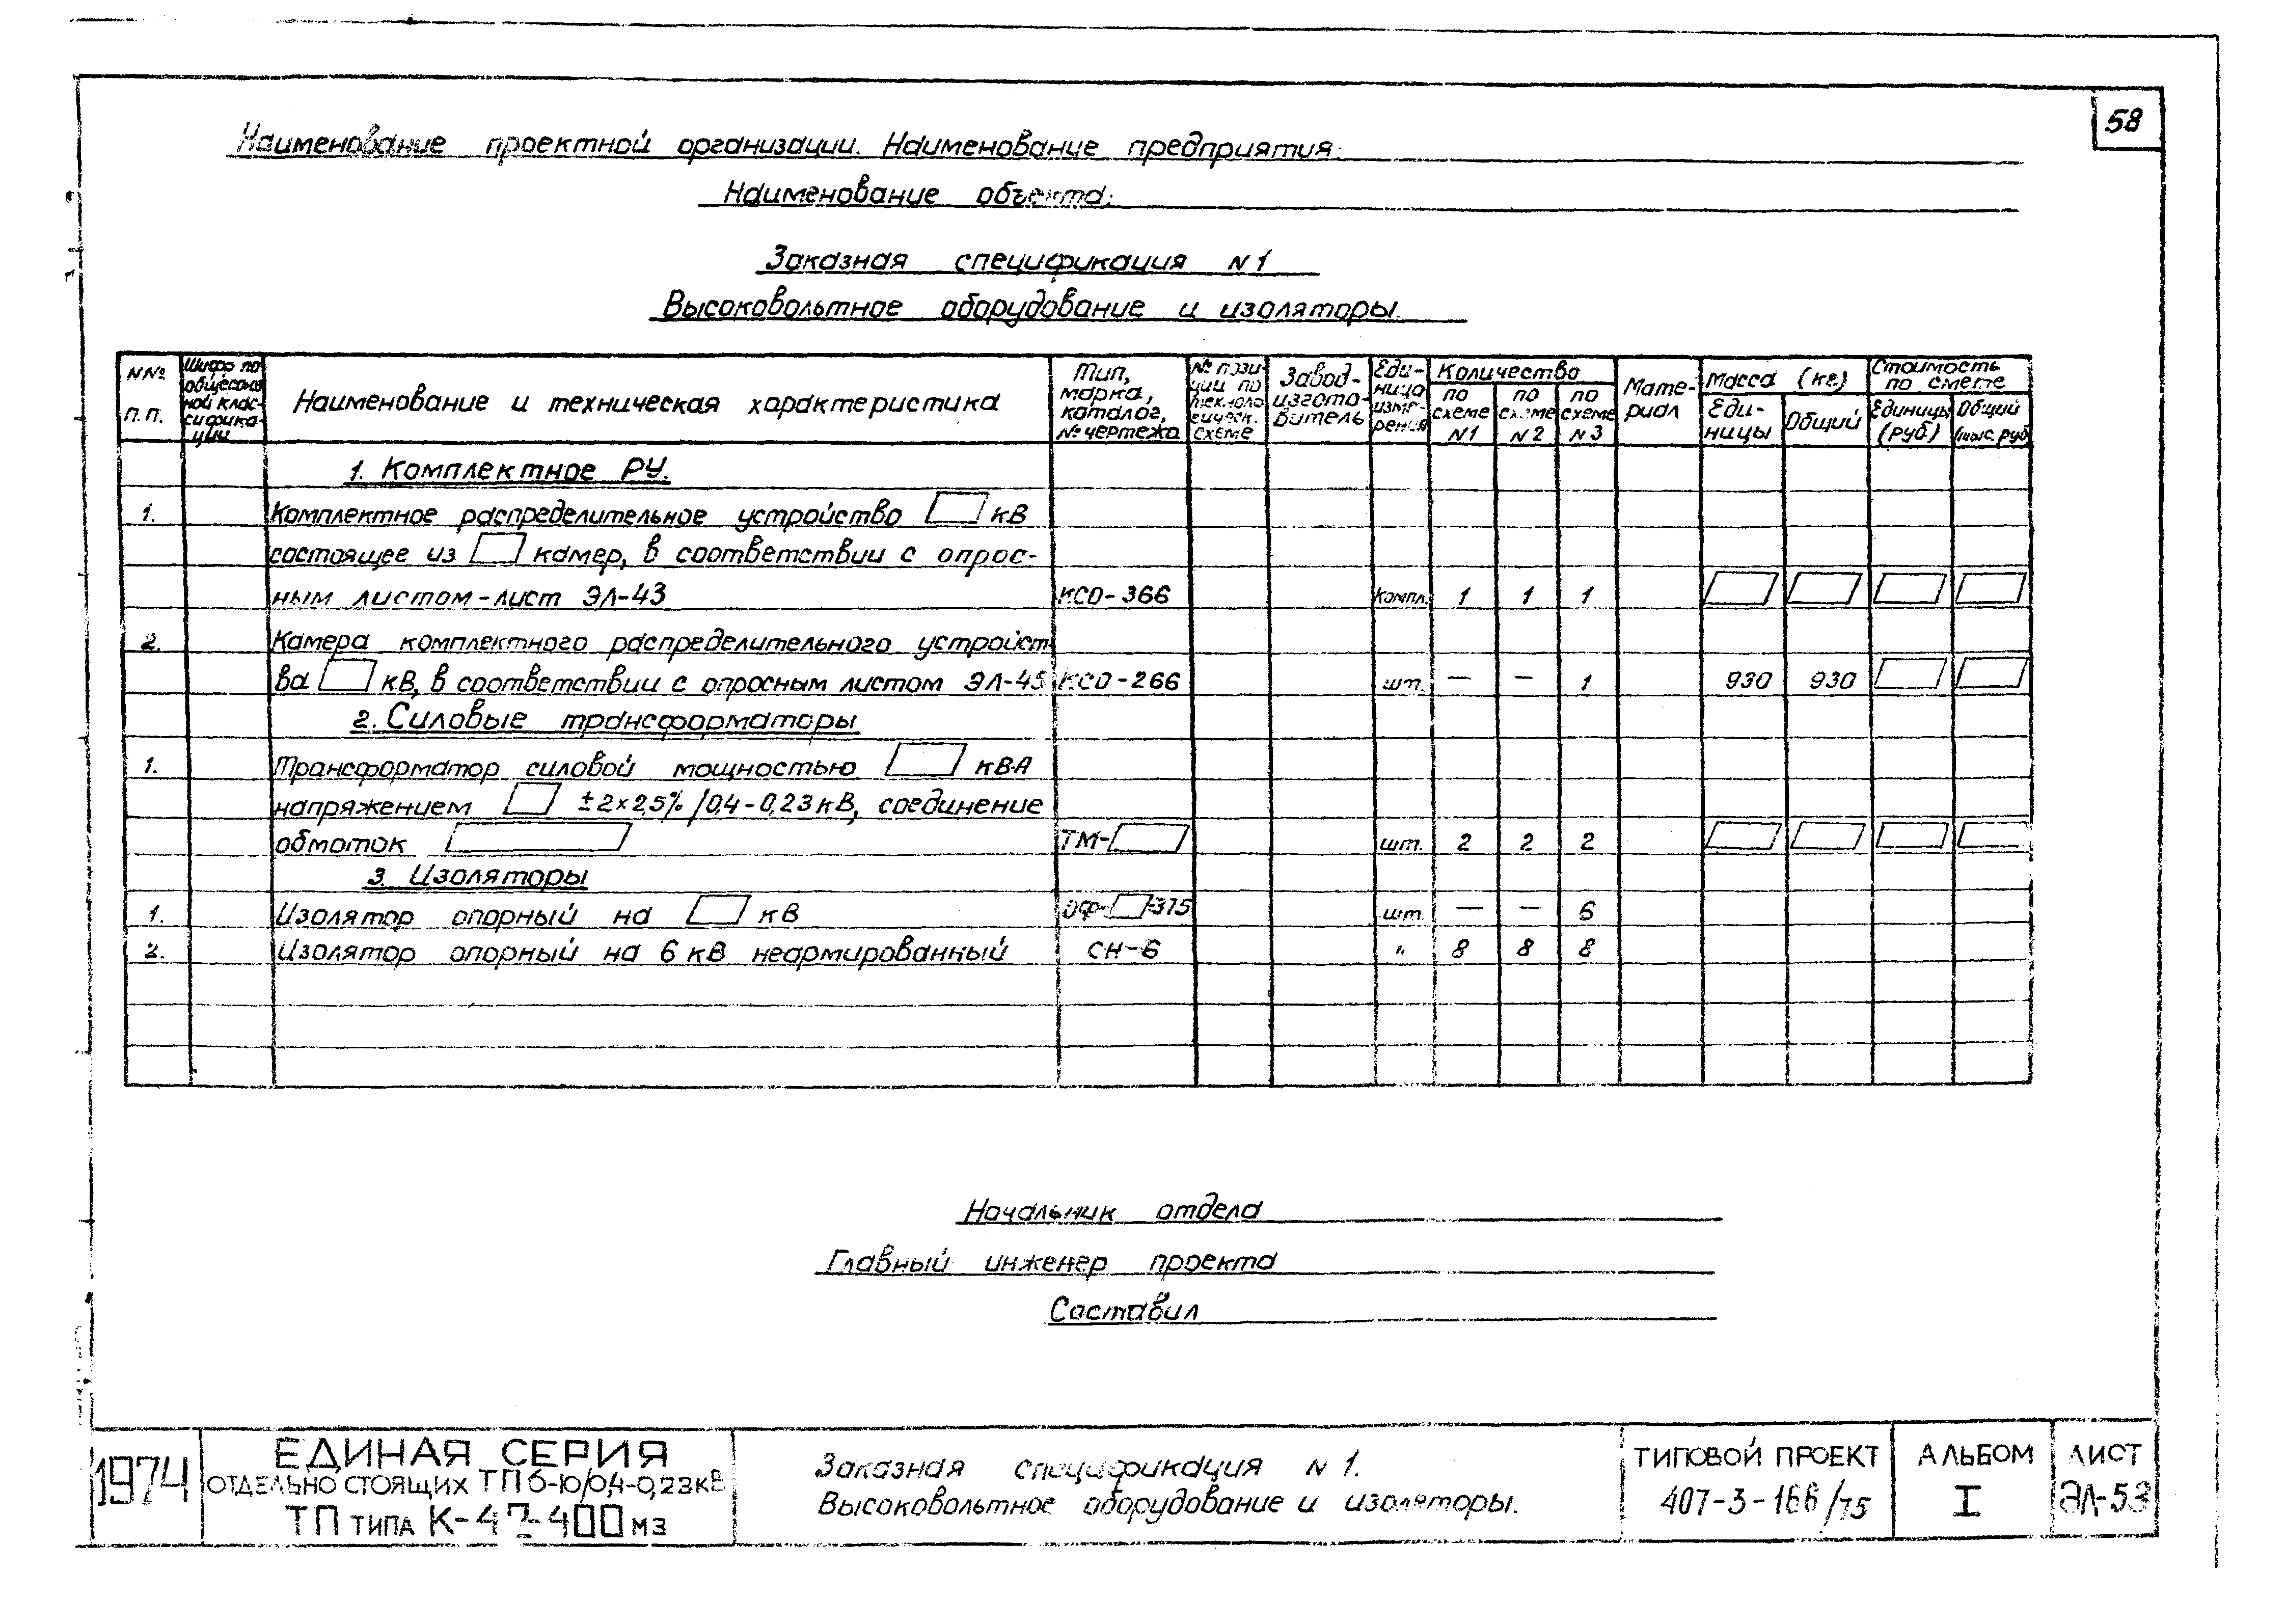 58
Наименование проектной организации. Наименование предприятия:
Наименование объекта:
Заказная спецификация N1
Высоковольтное оборудование и изоляторы.
NNº п.п.
Шифр по общесоюзной классификации
Наименование и техническая характеристика
Тип, марка, каталог, № чертежа
№ позиции по технологическ. схеме
Завод-изготовитель
Единица измерения
Количество
по схеме N1
по схеме N2
по схеме N3
Материал
Масса (кг)
Единицы
Общий
Стоимость по смете
Единицы (руб)
Общий (тыс. руб
1. Комплектное РУ.
1. Комплектное распределительное устройство кВ
состоящее из камер, в соответствии с опрос-
ным листом-лист ЭЛ-43 КСО-366 компл. 1 1 1
2. Камера комплектного распределительного устройст
ва кВ, в соответствии с опросным листом ЭЛ-45 КСО-266 шт. — — 1 930 930
2. Силовые трансформаторы
1. Трансформатор силовой мощностью кВА
напряжением ±2×2,5%/0,4-0,23кВ, соединение
обмоток ТМ- шт. 2 2 2
3. Изоляторы
1. Изолятор опорный на кВ ОФ- -375 шт. — — 6
2. Изолятор опорный на 6 кВ неармированный СН-6 " 8 8 8
Начальник отдела
Главный инженер проекта
Составил
1974
ЕДИНАЯ СЕРИЯ
ОТДЕЛЬНО СТОЯЩИХ ТП 6-10/0,4-0,23кВ
ТП ТИПА К-42-400 М3
Заказная спецификация N1.
Высоковольтное оборудование и изоляторы.
ТИПОВОЙ ПРОЕКТ
407-3-166/75
АЛЬБОМ
I
ЛИСТ
ЭЛ-53